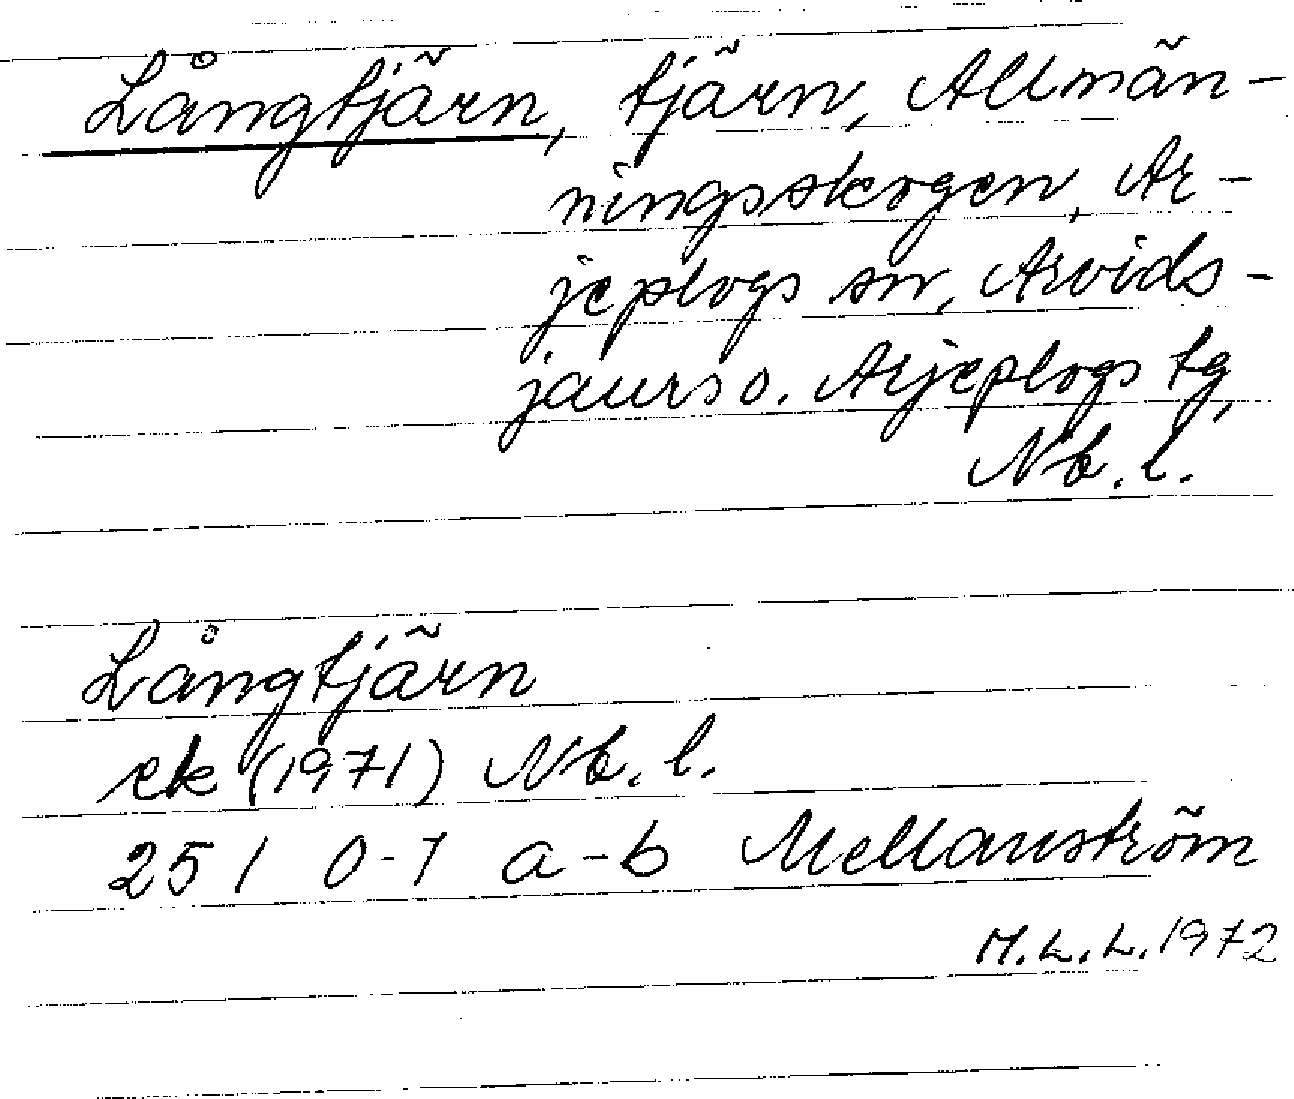 Långtjärn, tjärn, Allmän-
ningsskogen, Ar-
jeplogs sn, Arvids-
jaurs o. Arjeplogs tg,
Nb. l.
Långtjärn
ek (1971) Nb. l.
25 I 0-1 a-b Mellanström
M.L.L. 1972